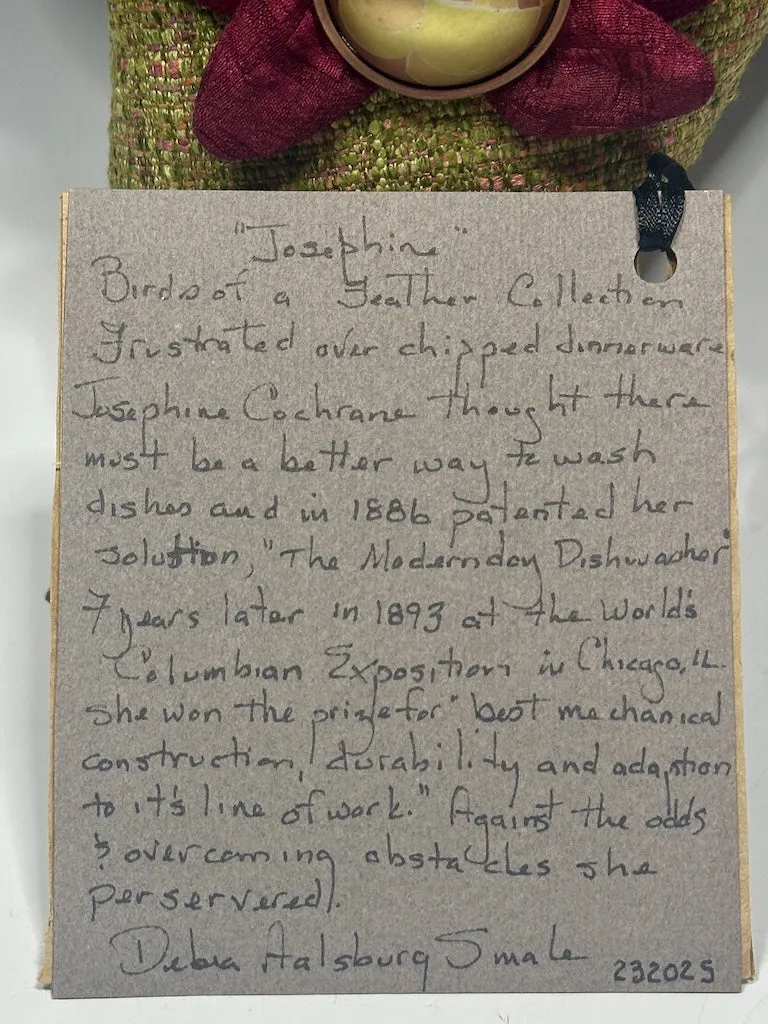 "Josephine"
Birds of a Feather Collection
Frustrated over chipped dinnerware
Josephine Cochrane thought there
must be a better way to wash
dishes and in 1886 patented her
solution, "The Modernday Dishwasher"
7 years later in 1893 at the World's
Columbian Exposition in Chicago, IL.
she won the prize for "best mechanical
construction, durability and adaption
to it's line of work." Against the odds
& overcoming obstacles she
perservered.
Debra Aalsburg Smale 232025